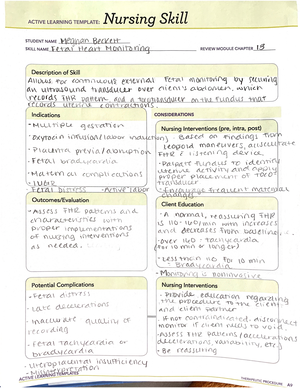 ACTIVE LEARNING TEMPLATE: Nursing Skill
STUDENT NAME Meghan Beckett
SKILL NAME Fetal Heart Monitoring REVIEW MODULE CHAPTER 13
Description of Skill
Allows for continuous external fetal monitoring by securing
an ultrasound transducer over client's abdomen, which
records FHR pattern and a tocotransducer on the fundus that
records uterine contractions.
Indications
- Multiple gestation
- Oxytocin infusion (labor induction)
- Placenta previa/abruption
- Fetal bradycardia
- Maternal complications
- IUGR
- Fetal distress - Active labor
CONSIDERATIONS
Nursing Interventions (pre, intra, post)
- Based on findings from
Leopold maneuvers, auscultate
FHR c listening device.
- Palpate fundus to identify
uterine activity and apply
proper placement of toco
transducer
- Encourage frequent maternal
changes
Outcomes/Evaluation
- Assess FHR patterns and
characteristics with
proper implementations
of nursing interventions
as needed.
Client Education
- A normal, reassuring FHR
is 110-160/min with increases
and decreases from baseline.
- Over 160: tachycardia
(for 10 min or longer)
- Less then 110 for 10 min
: bradycardia
- Monitoring is noninvasive
Potential Complications
- Fetal distress
- Late decelerations
- Inaccurate quality of
recording
- Fetal tachycardia or
bradycardia
- Uteroplacental insufficiency
- Misinterpretation
Nursing Interventions
- Provide education regarding
the procedure to the client
and client partner
- If not contraindicated, disconnect
monitor if client needs to void.
- Assess FHR patterns (accelerations,
decelerations, variability, etc.)
- Be reassuring
ACTIVE LEARNING TEMPLATES
THERAPEUTIC PROCEDURE A9